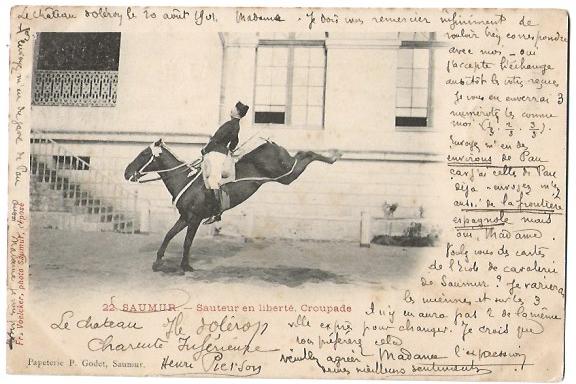 Le château d'oléron le 20 août 1901. Madame - Je dois vous remercier infiniment de
vouloir bien correspondre
avec moi - oui
j'accepte l'échange
aussitôt les votes reçues
Je vous en enverrai 3
numérotés comme
moi (1/3 2/3 3/3).
Envoyez m'en des
environs de Pau
car j'ai celles de Pau
déjà - envoyez m'en
aussi de la frontière
espagnole mais
oui, Madame.
Voulez vous des cartes
de l'Ecole de cavalerie
de Saumur? Je varierai
les miennes et sur les 3
il n'y en aura pas 2 de la même
ville exprès pour changer. Je crois que
vous préférez cela
veuillez agréer Madame l'expression
de mes meilleurs sentiments
22 SAUMUR - Sauteur en liberté, Croupade
Le château d'oléron
Charente Inférieure
Henri Pierson
Papeterie P. Godet, Saumur.
Fr. Voelcker, photo Saumur, déposé